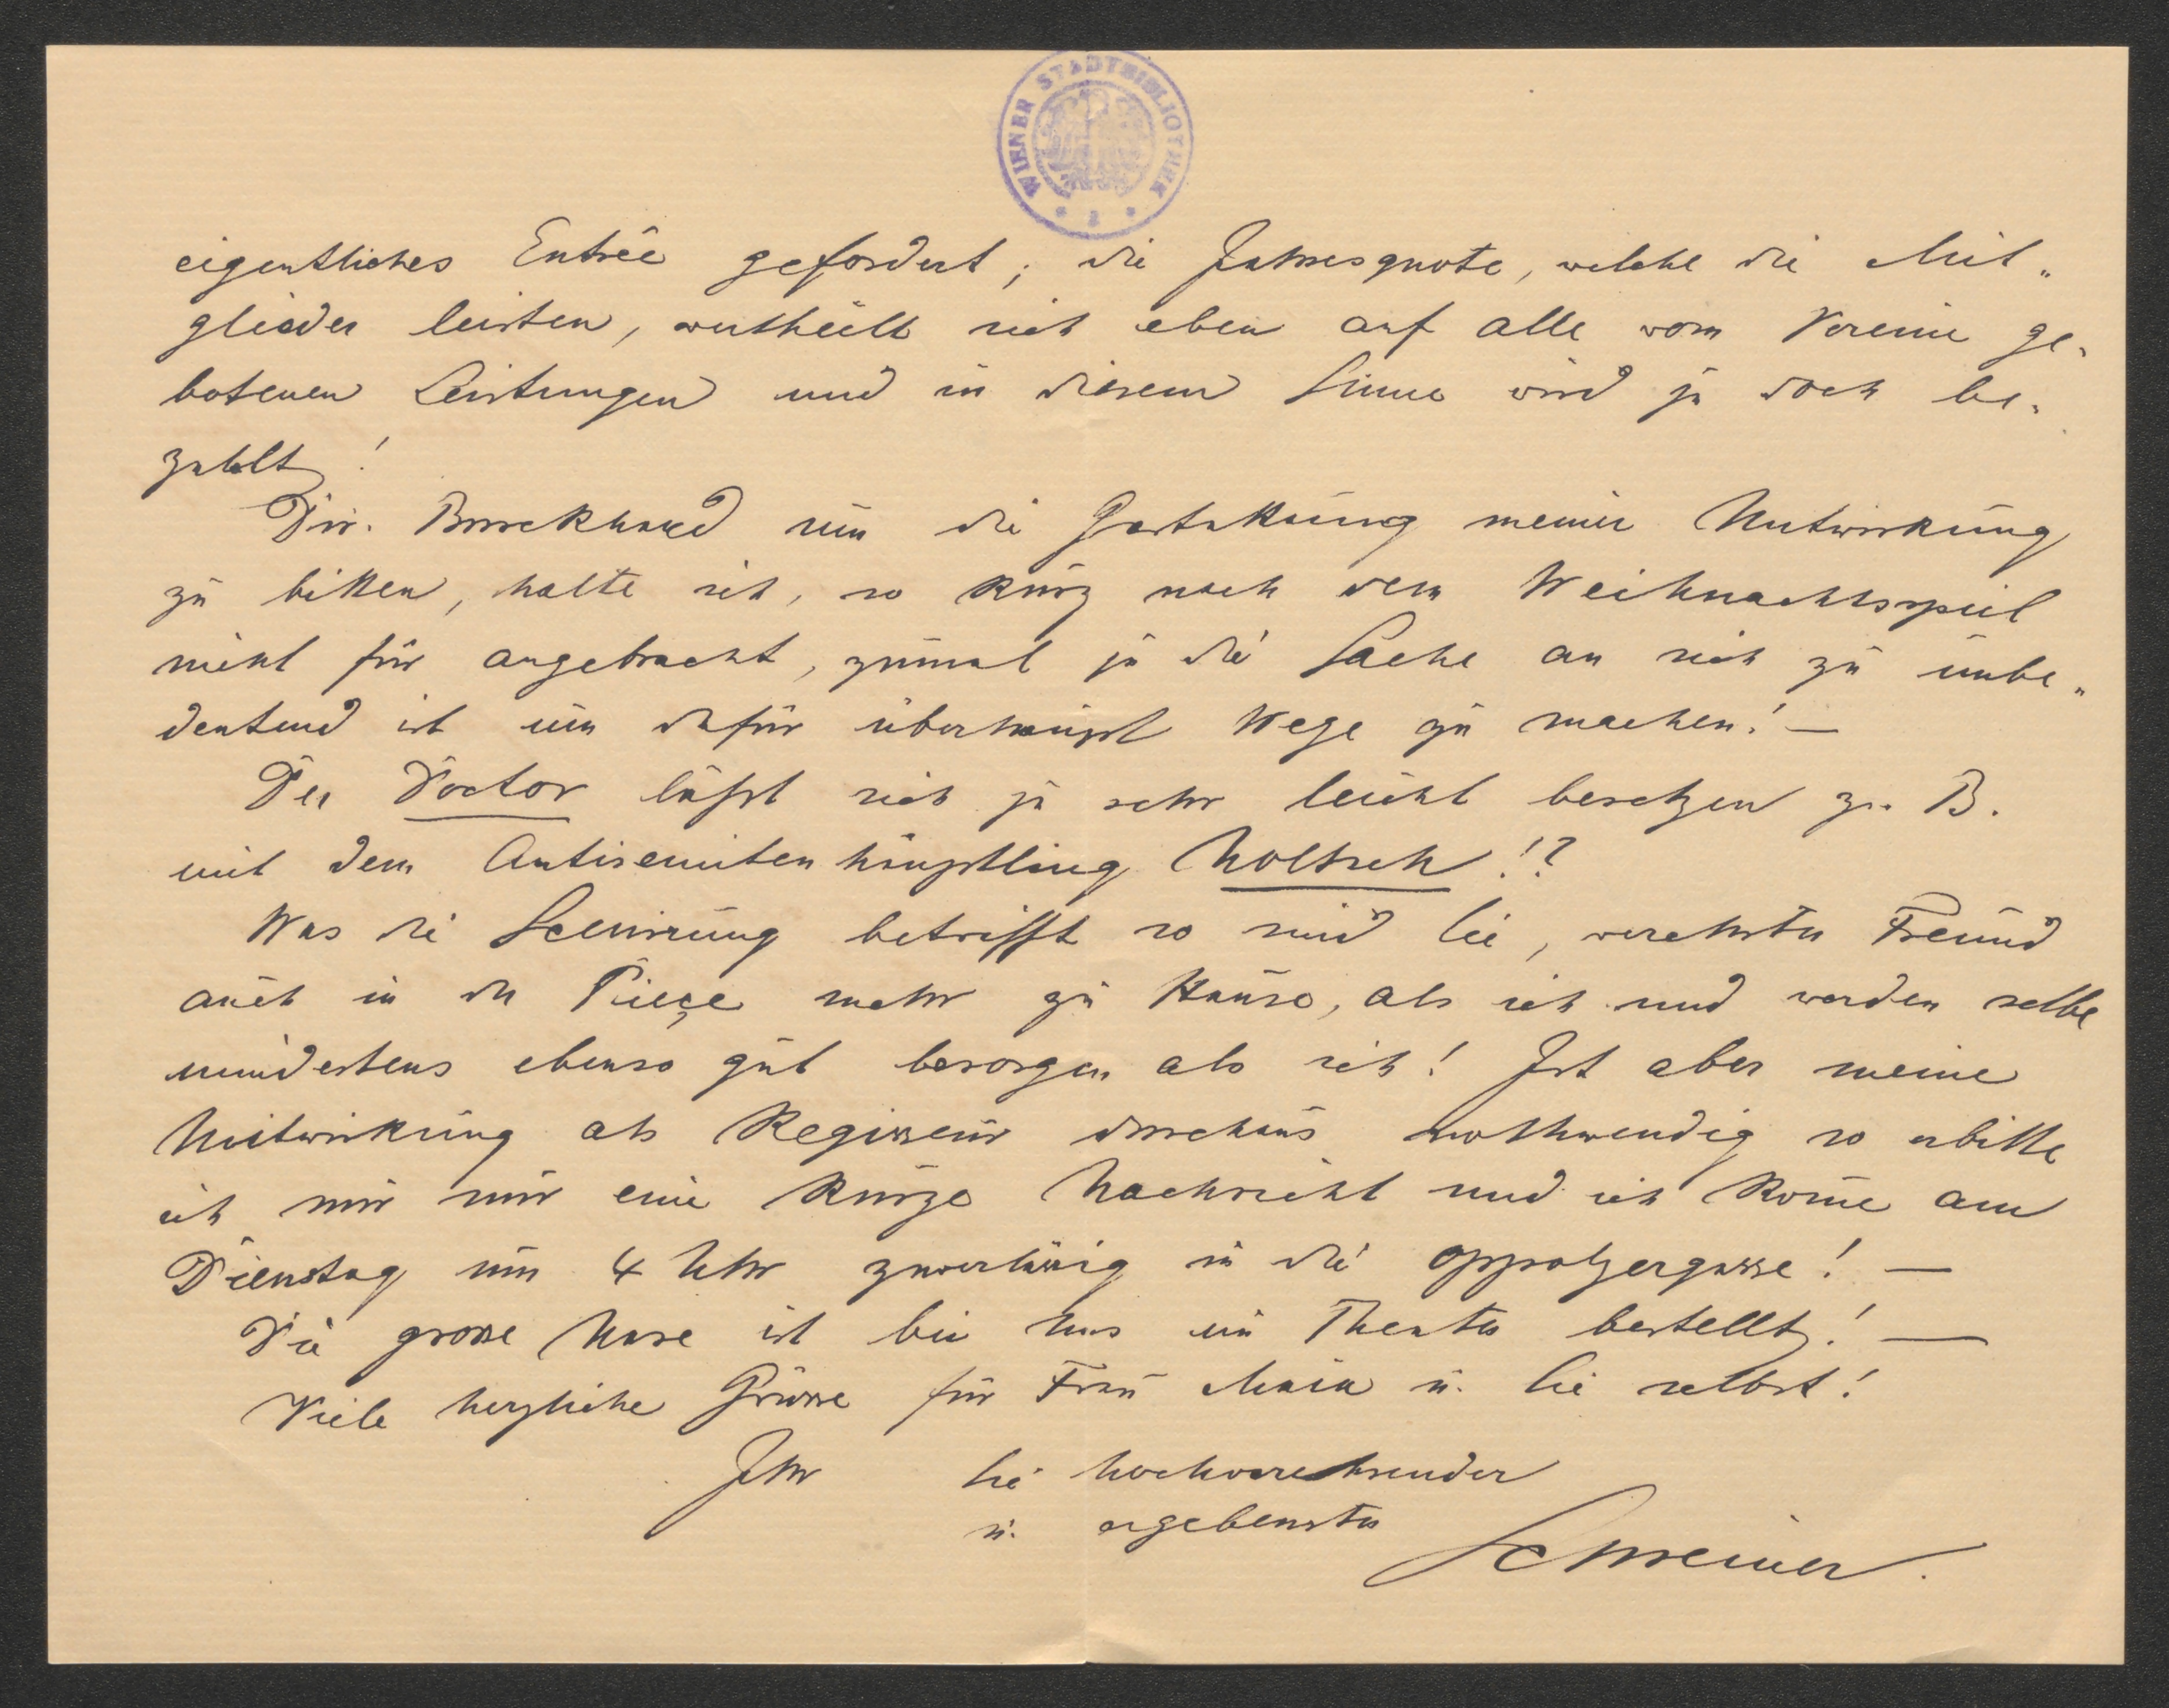 WIENER STADTBIBLIOTHEK
eigentliches Entrée gefordert; die Jahresquote, welche die Mit„
glieder leisten, vertheilt sich eben auf alle vom Vereine ge„
botenen Leistungen und in diesem Sinne wird ja doch be„
zahlt!
Dir. Burckhard um die Gestattung meiner Mitwirkung
zu bitten, halte ich, so kurz nach dem Weihnachtsspiel
nicht für angebracht, zumal ja die Sache an sich zu unbe„
deutend ist um dafür überhaupt Wege zu machen! —
Der Doctor läßt sich ja sehr leicht besetzen z. B.
mit dem Antisemitenhäuptling Moltsch!?
Was die Scenirung betrifft so sind Sie, verehrter Freund
auch in der Pieçe mehr zu Hause, als ich und werden selbe
mindestens ebenso gut besorgen als ich! Ist aber meine
Mitwirkung als Regisseur durchaus nothwendig so erbitte
ich mir nur eine kurze Nachricht und ich kom̄e am
Dienstag um 4 Uhr zuverlässig in die Oppolzergasse! —
Die grosse Nase ist bei uns im Theater bestellt! —
Viele herzliche Grüsse für Frau Maia u. Sie selbst!
Ihr Sie hochverehrender
u. ergebenster
Schreiner.